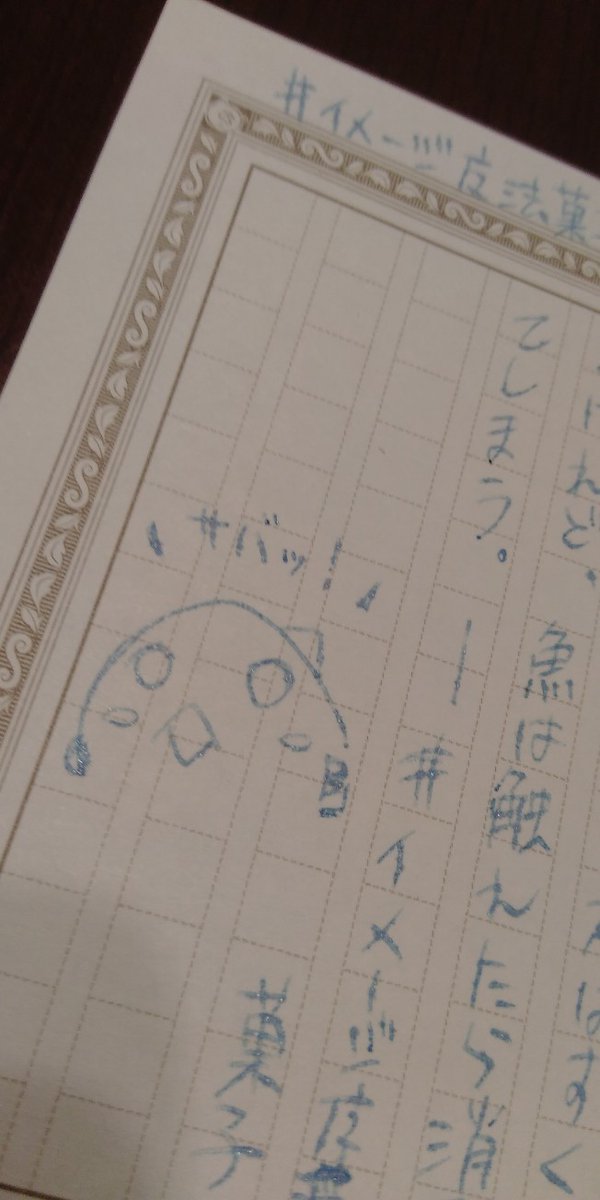 #イメージ
はすく
けれど、魚は触れたら消
てしまう。ー#イメージ
菓子
サバッ!